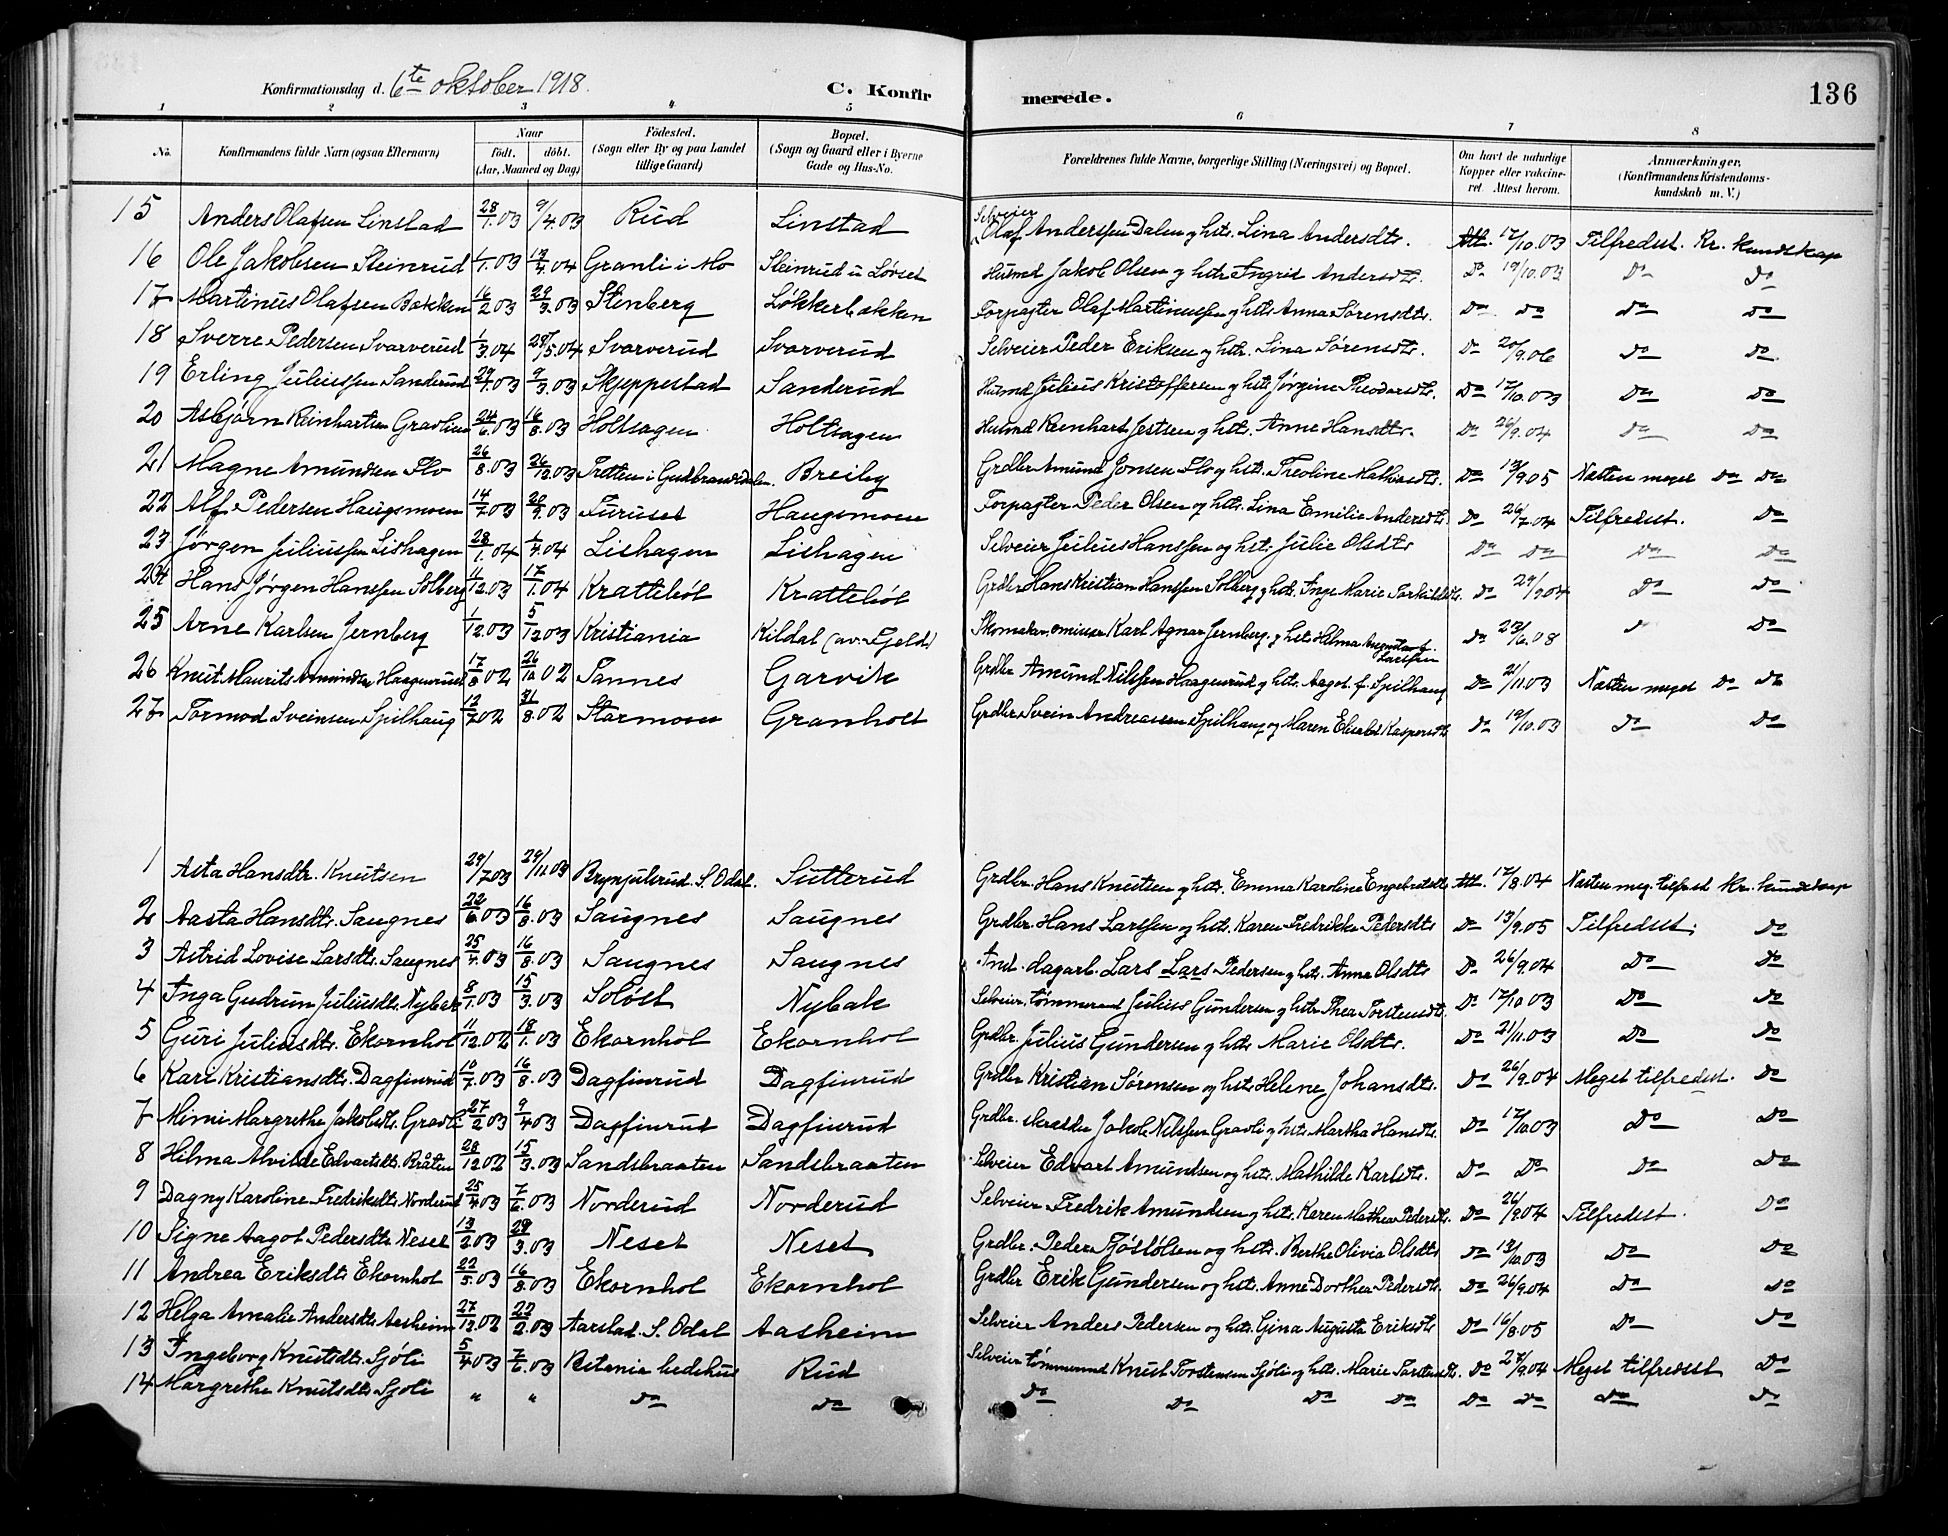 Konfirmationsdag d. 6te oktober 1918.
C. Konfirmerede.
136
1 2 3 4 5 6 7 8
No. Konfirmandens fulde Navn (ogsaa Efternavn) Naar født. døbt. (Aar, Maaned og Dag) Fødested. (Sogn eller By og paa Landet tillige Gaard) Bopæl. (Sogn og Gaard eller i Byerne Gade og Hus-No. Forældrenes fulde Navne, borgerlige Stilling (Næringsvei) og Bopæl. Om havt de naturlige Kopper eller vakcineret. Attest herom. Anmærkninger, (Konfirmandens Kristendomskundskab m. V.)
15 Anders Olafsen Linstad 28/1.03 9/4.03 Rud Linstad Selveier Olaf Anderssen Dalen og hstr. Lina Andersdtr. Att. 17/10.03 Tilfredsst. Kr. kundskap
16 Ole Jakobsen Steinrud 1/1.03 17/4.04 Granli i Mo Steinrud u Lørset Husmd Jakob Olsen og hstr Ingrid Andersdtr. Do 19/10.03 Do Do
17 Martinus Olafsen Bakken 16/2 03 29/3.03 Stenberg Løkkerbakken Forpagter Olaf Martinussen og hstr. Anna Sørensdtr. Do Do Do Do
18 Sverre Pedersen Svarverud 1/3.04 29/5.04 Svarverud Svarverud Selveier Peder Eriksen og hstr. Lina Sørensdtr. Do 20/9.06 Do Do
19 Erling Juliussen Sanderud 29/1.03 9/3.03 Skjeppestad Sanderud Husmd Julius Kristoffersen og hstr Jørgine Theodorsdtr. Do 17/10.03 Do Do
20 Asbjørn Reinhartsen Gravlien 24/6.03 16/8.03 Holtsagen Holtsagen Husmd Reinhart Jestsen og hstr. Anne Hansdtr. Do 26/9.04 Do Do
21 Magne Amundsen Flo 26/8.03 26/12.03 Tretten i Gudbrandsdalen. Breiby Grdbr Amund Jonsen Flo og hstr. Theoline Mathisdtr. Do 13/9.05 Næsten meget Do Do
22 Alf Pedersen Haugsmoen 14/7.03 20/9.03 Furuset Haugsmoen Forpagter Peder Olsen og hstr. Lina Emilie Andersdtr. Do 26/7.04 Tilfredsst. Do
23 Jørgen Juliussen Lishagen 28/1.04 1/4.04 Lishagen Lishagen Selveier Julius Hanssen og hstr. Julie Olsdtr Do Do Do Do
24 Hans Jørgen Hanssen Solberg 11/12.03 17/1.04 Krattebøl Krattebøl Grdbr Hans Kristian Hanssen Solberg og hstr. Inge Marie Torkildsdtr. Do 29/9.04 Do Do
25 Arne Karlsen Jernberg 1/12.03 5/12 03 Kristiania Kildal (av. Fjeld) Skomaker Karl Agnar Jernberg og hstr Hilma Augusta f. Larssen Do 23/6.08 Do
26 Knut Maurits Amundsen Haagenrud 17/8 02 26/10 02 Tannes Garvik Grdbr. Amund Nilssen Haagenrud og hstr. Aagot f. Spilhaug Do 21/11.03 Næsten meget Do Do
27 Tormod Sveinsen Spilhaug 12/7.02 31/8.02 Stormoen Granholt Grdbr. Svein Andreassen Spilhaug og Maren Elisabet Kaspersdtr Do 19/10.03 Do Do
1 Asta Hansdtr. Knutsen 29/7.03 29/11.03 Brynjulsrud. S. Odal. Sutterud Grdbr. Hans Knutsen og hstr. Emma Karoline Engebretsdtr Att. 17/8.04 Næsten meg. tilfred Kr. kundskap
2 Aasta Hansdtr. Saugnes 22/6.03 16/8.03 Saugnes Saugnes Grdbr. Hans Larssen og hstr. Karen Fredrikke Pedersdtr Do 13/9.05 Tilfredsst. Do
3 Astrid Lovise Larsdtr. Saugnes 25/4.03 16/8.03 Saugnes Saugnes Ind. dagarb. Lars Lars Pedersen og hstr. Anna Olsdtr Do 26/9.04 Do Do
4 Inga Gudrun Juliusdtr. Nybak 8/1.03 15/3.03 Soløst Nybak Selveier tømmermd Julius Gundersen og hstr Thea Torstensdtr. Do 17/10 03 Do Do
5 Guri Juliusdtr. Ekornhol 11/12.02 18/1.03 Ekornhol Ekornhol Grdbr. Julius Gundersen og hstr Marie Olsdtr. Do 21/11.03 Do Do
6 Kari Kristiansdtr. Dagfinrud 10/7.03 16/8.03 Dagfinrud Dagfinrud Grdbr Kristian Sørensen og hstr Helene Johansdtr. Do 26/9.04 Meget tilfredsst. Do
7 Mimi Margrethe Jakobsdtr. Gravli 27/2 03 9/4 03 Dagfinrud Dagfinrud Grdbr. skrædder Jakob Nilssen Gravli og hstr. Martha Hansdtr. Do 17/10.03 Do Do
8 Hilma Alvilde Edvartsdtr. Bråten 28/12.02 15/3.03 Sandsbraaten Sandsbraaten Selveier Edvart Amundsen og hstr. Mathilde Karlsdtr. Do Do Do Do
9 Dagny Karoline Fredriksdtr. Norderud 25/4 03 7/6.03 Norderud Norderud Selveier Fredrik Amundsen og hstr. Karen Mathea Pedersdtr. Do 26/9.04 Tilfredsst. Do
10 Signe Aagot Pedersdtr Neset 13/2.03 29/3.03 Neset Neset Grdbr. Peder Tjøstolsen og hstr. Berthe Olivia Olsdtr Do 13/10.03 Do Do
11 Andrea Eriksdtr Ekornhol 22/5.03 16/8.03 Ekornhol Ekornhol Grdbr Erik Gundersen og hstr. Anne Dorthea Pedersdtr. Do 26/9.04 Do Do
12 Helga Amalie Andersdtr. Aasheim 27/12.02 22/2.03 Aarstad. S. Odal Aasheim Selveier Anders Pedersen og hstr. Gina Augusta Eriksdtr Do 16/8.05 Do Do
13 Ingeborg Knutsdtr. Sjøli 5/4 03 7/6.03 Betania bedehus Rud Selveier tømmermd Knut Torstensen Sjøli og hstr. Marie Torstensdtr. Do 27/9.04 Meget tilfredsst Do
14 Margrethe Knutsdtr Sjøli " " Do Do Do Do Do Do Do Do Do Do